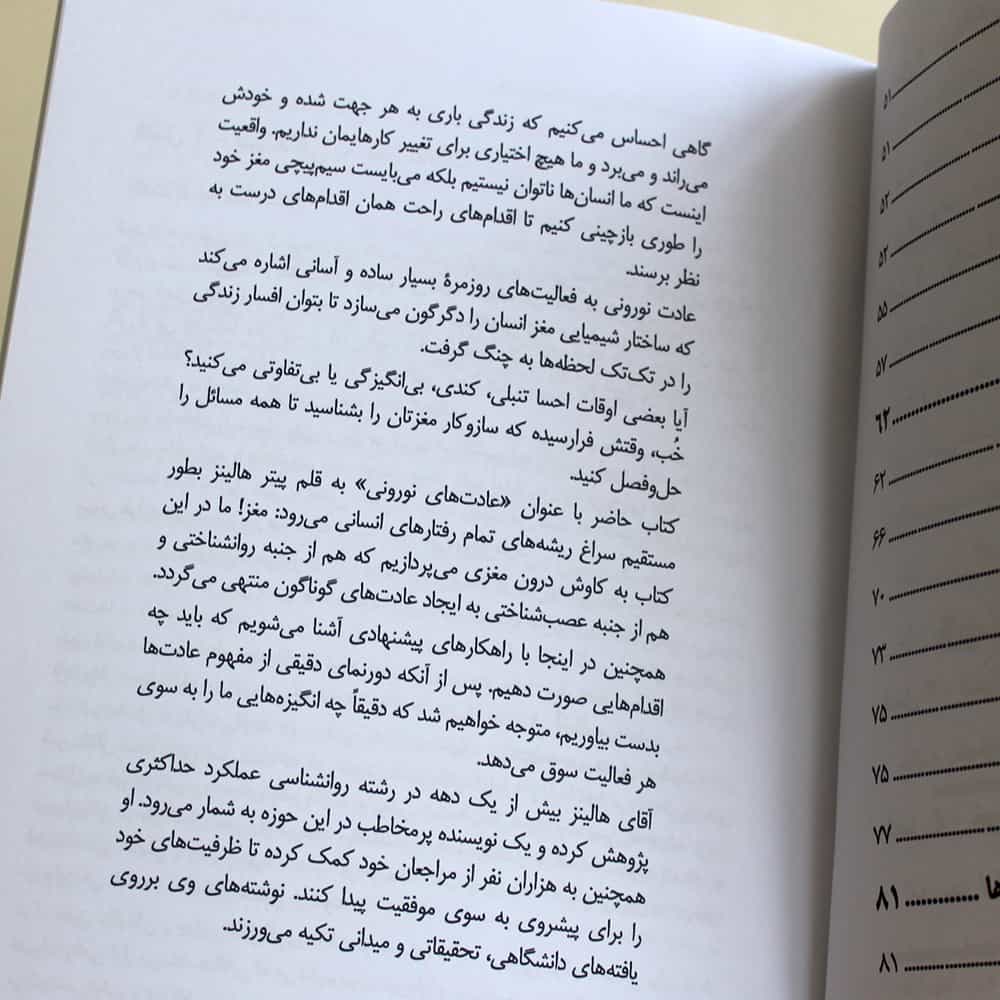 گاهی احساس می‌کنیم که زندگی باری به هر جهت شده و خودش
می‌راند و می‌برد و ما هیچ اختیاری برای تغییر کارهایمان نداریم. واقعیت
اینست که ما انسان‌ها ناتوان نیستیم بلکه می‌بایست سیم‌پیچی مغز خود
را طوری بازچینی کنیم تا اقدام‌های راحت همان اقدام‌های درست به
نظر برسند.
عادت نورونی به فعالیت‌های روزمرهٔ بسیار ساده و آسانی اشاره می‌کند
که ساختار شیمیایی مغز انسان را دگرگون می‌سازد تا بتوان افسار زندگی
را در تک‌تک لحظه‌ها به چنگ گرفت.
آیا بعضی اوقات احسا تنبلی، کندی، بی‌انگیزگی یا بی‌تفاوتی می‌کنید؟
خُب، وقتش فرارسیده که سازوکار مغزتان را بشناسید تا همه مسائل را
حل‌وفصل کنید.
کتاب حاضر با عنوان «عادت‌های نورونی» به قلم پیتر هالینز بطور
مستقیم سراغ ریشه‌های تمام رفتارهای انسانی می‌رود: مغز! ما در این
کتاب به کاوش درون مغزی می‌پردازیم که هم از جنبه روانشناختی و
هم از جنبه عصب‌شناختی به ایجاد عادت‌های گوناگون منتهی می‌گردد.
همچنین در اینجا با راهکارهای پیشنهادی آشنا می‌شویم که باید چه
اقدام‌هایی صورت دهیم. پس از آنکه دورنمای دقیقی از مفهوم عادت‌ها
بدست بیاوریم، متوجه خواهیم شد که دقیقاً چه انگیزه‌هایی ما را به سوی
هر فعالیت سوق می‌دهد.
آقای هالینز بیش از یک دهه در رشته روانشناسی عملکرد حداکثری
پژوهش کرده و یک نویسنده پرمخاطب در این حوزه به شمار می‌رود. او
همچنین به هزاران نفر از مراجعان خود کمک کرده تا ظرفیت‌های خود
را برای پیشروی به سوی موفقیت پیدا کنند. نوشته‌های وی برروی
یافته‌های دانشگاهی، تحقیقاتی و میدانی تکیه می‌ورزند.
۵۱
۵۱
۵۲
۵۲
۵۵
۵۷
۶۲
۶۲
۶۶
۷۰
۷۳
۷۵
۷۵
۷۷
ها ............. ۸۱
۸۱